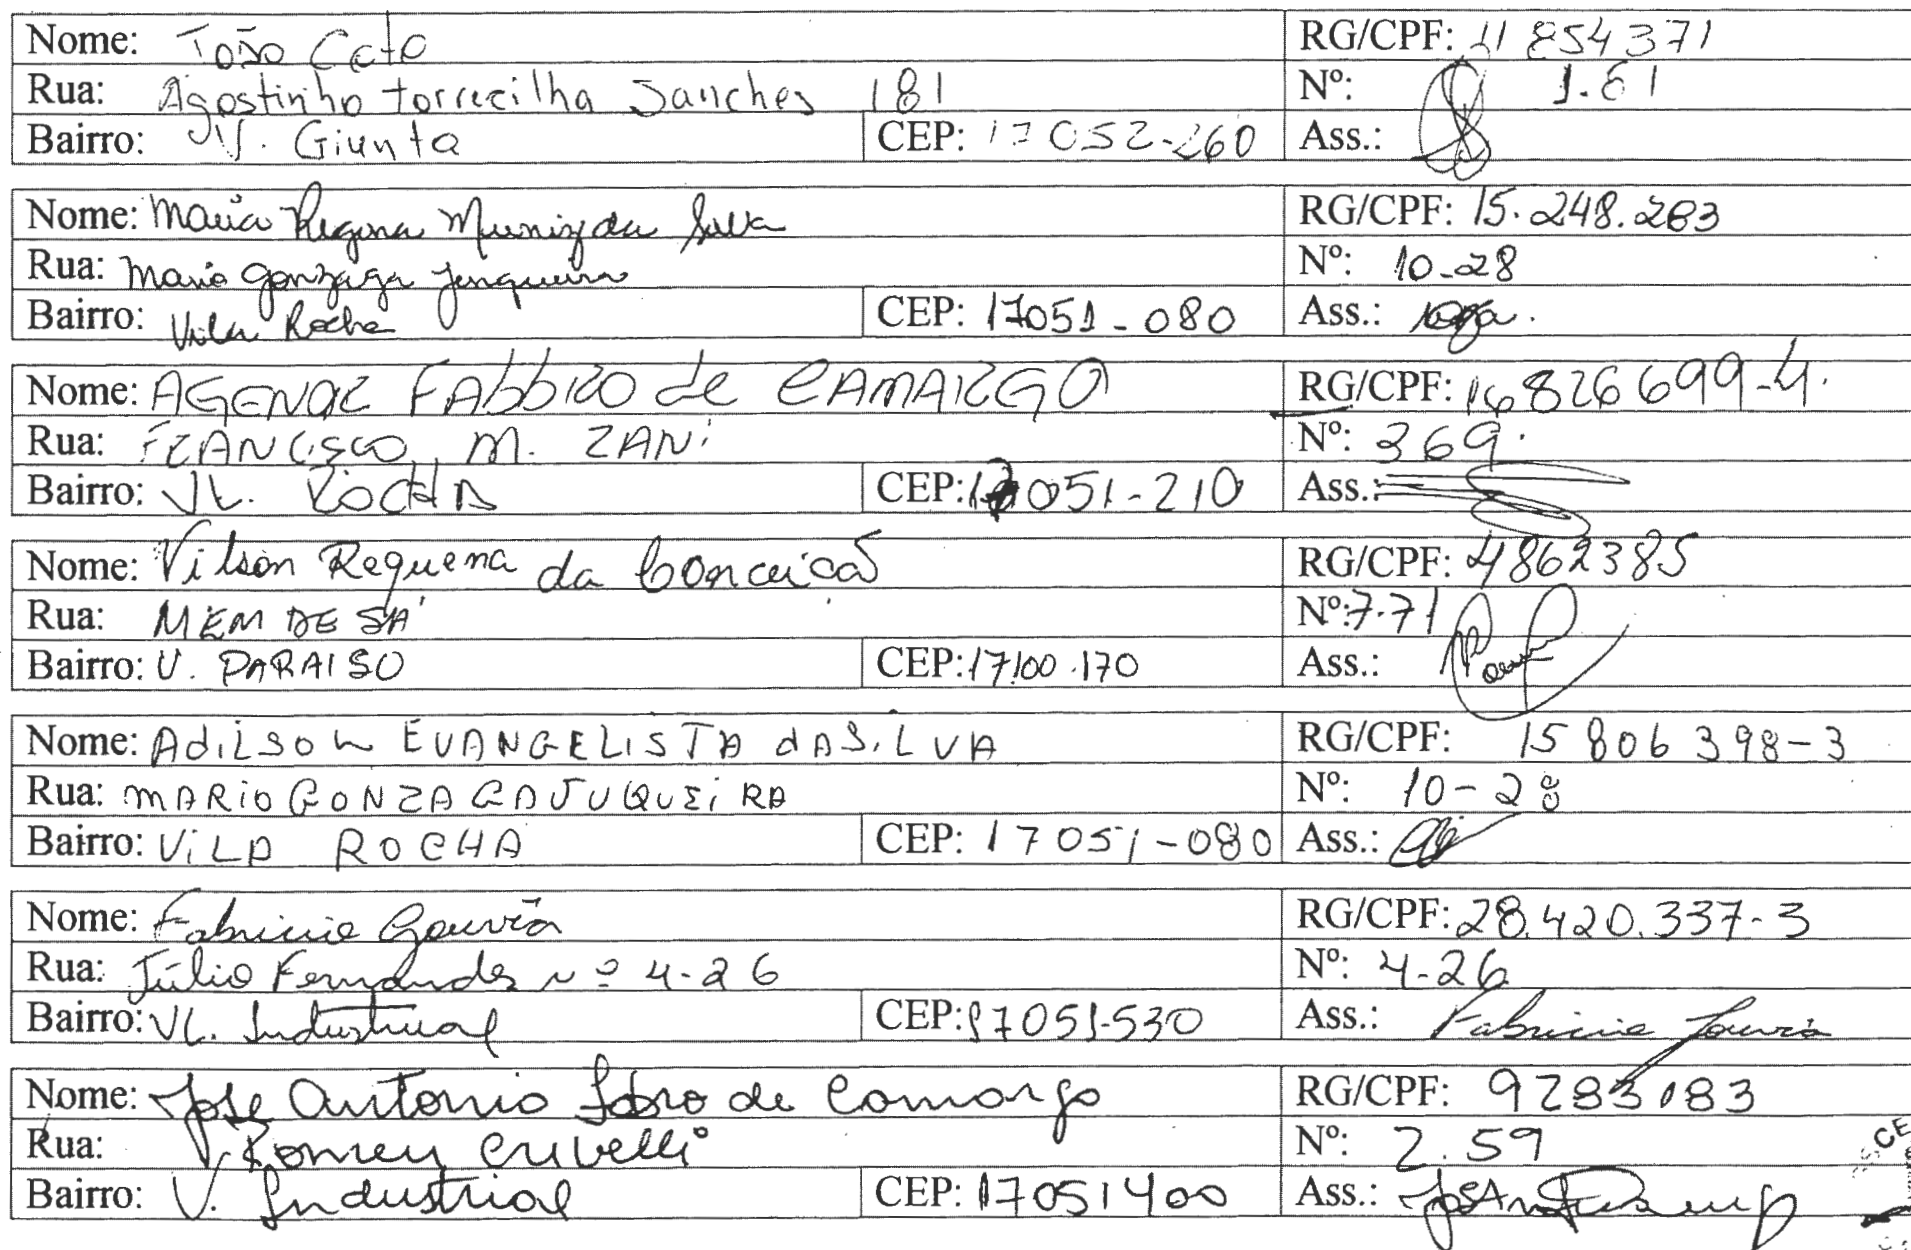 Nome: João Cato RG/CPF: 11 854371
Rua: Agostinho torrecilha Sanches 181 Nº: 1.81
Bairro: V. Giunta CEP: 17052-260 Ass.:
Nome: Maria Regina Muniz da Silva RG/CPF: 15.248.283
Rua: Mario Gonzaga Junqueira Nº: 10-28
Bairro: Vila Rocha CEP: 17051-080 Ass.:
Nome: AGENOR FAbbRO de CAMARGO RG/CPF: 16826699-4.
Rua: FRANCISCO M. ZANI Nº: 369.
Bairro: VL. ROCHA CEP: 17051-210 Ass.:
Nome: Vilson Requena da Conceicão RG/CPF: 4862385
Rua: MEM DE SÁ Nº: 7-71
Bairro: V. PARAISO CEP: 17100.170 Ass.:
Nome: AdiLSON EVANGELISTA dA SiLVA RG/CPF: 15 806 398-3
Rua: MARIO GONZAGA JUQUEiRA Nº: 10-28
Bairro: ViLA ROCHA CEP: 17051-080 Ass.:
Nome: Fabricio Gouvêa RG/CPF: 28.420.337-3
Rua: Júlio Fernandes nº 4-26 Nº: 4-26
Bairro: VL. Industrial CEP: 17051-530 Ass.: Fabricio Gouvêa
Nome: José Antonio Fabro de Camargo RG/CPF: 9283183
Rua: Romeu Crivelli Nº: 2.59
Bairro: V. Industrial CEP: 17051400 Ass.: